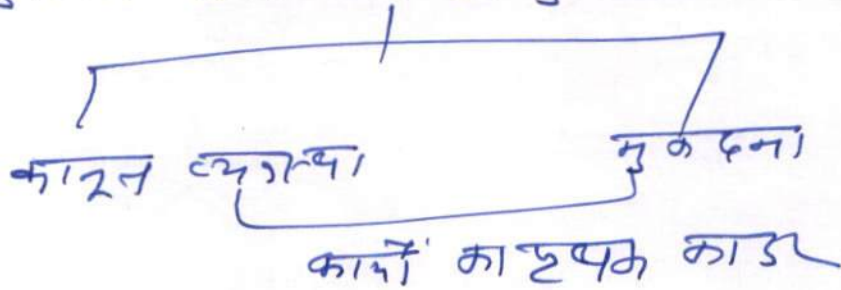 कानून व्यवस्था मुकदमा
कार्यों का पृथक काडर